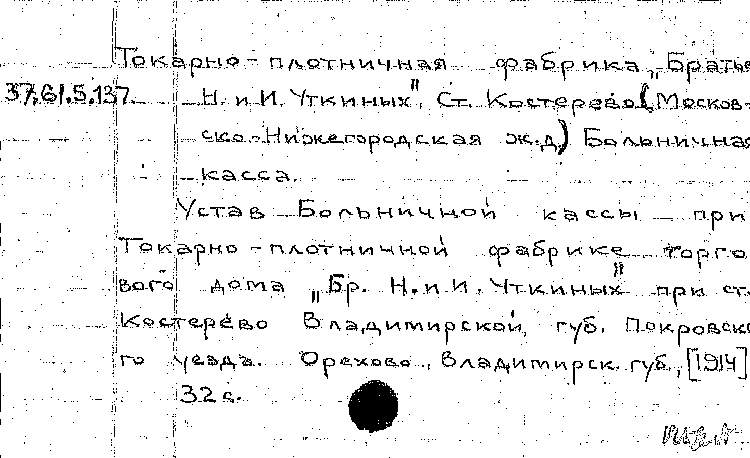 Токарно-плотничная фабрика „Братье
37.61.5.137. Н. и И. Уткиных", Ст. Костерево (Москов-
ско-Нижегородская ж.д.) Больничная
касса.
Устав Больничной кассы при
Токарно-плотничной фабрике торго
вого дома „Бр. Н. и И. Уткиных" при ст.
Костерево Владимирской губ. Покровско
го уезда. Орехово, Владимирск. губ., [1914]
32 с.